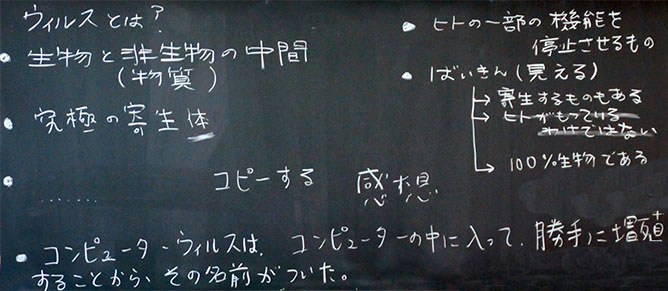 ウィルスとは？
• 生物と非生物の中間
(物質)
• 究極の寄生体
• ‥‥‥ コピーする 感想
• ヒトの一部の機能を
停止させるもの
• ばいきん(見える)
→ 寄生するものもある
→ ヒトがもっている
わけではない
→ 100%生物である
• コンピューターウィルスは、コンピューターの中に入って、勝手に増殖
することから、その名前がついた。